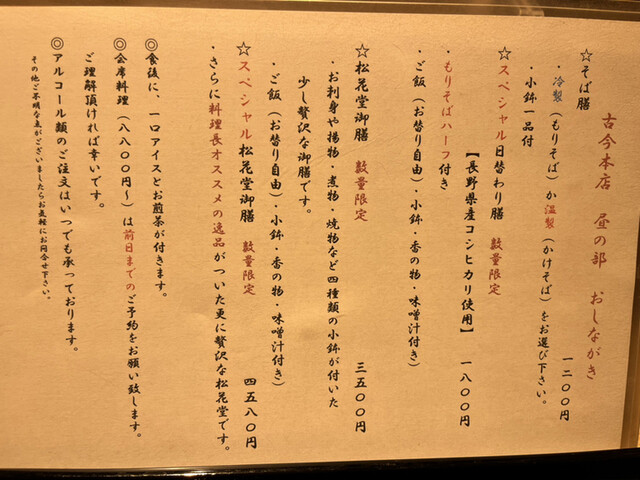 古今本店 昼の部 おしながき
☆そば膳 一二〇〇円
・冷製（もりそば）か温製（かけそば）をお選び下さい。
・小鉢一品付
☆スペシャル日替わり膳 数量限定 一八〇〇円
【長野県産コシヒカリ使用】
・もりそばハーフ付き
・ご飯（お替り自由）・小鉢・香の物・味噌汁付き）
☆松花堂御膳 数量限定 三五〇〇円
・お刺身や揚物・煮物・焼物など四種類の小鉢が付いた
少し贅沢な御膳です。
・ご飯（お替り自由）・小鉢・香の物・味噌汁付き）
☆スペシャル松花堂御膳 数量限定 四五八〇円
・さらに料理長オススメの逸品がついた更に贅沢な松花堂です。
◎食後に、一口アイスとお煎茶が付きます。
◎会席料理（八八〇〇円～）は前日までのご予約をお願い致します。
ご理解頂ければ幸いです。
◎アルコール類のご注文はいつでも承っております。
その他ご不明な点がございましたらお気軽にお問合せ下さい。